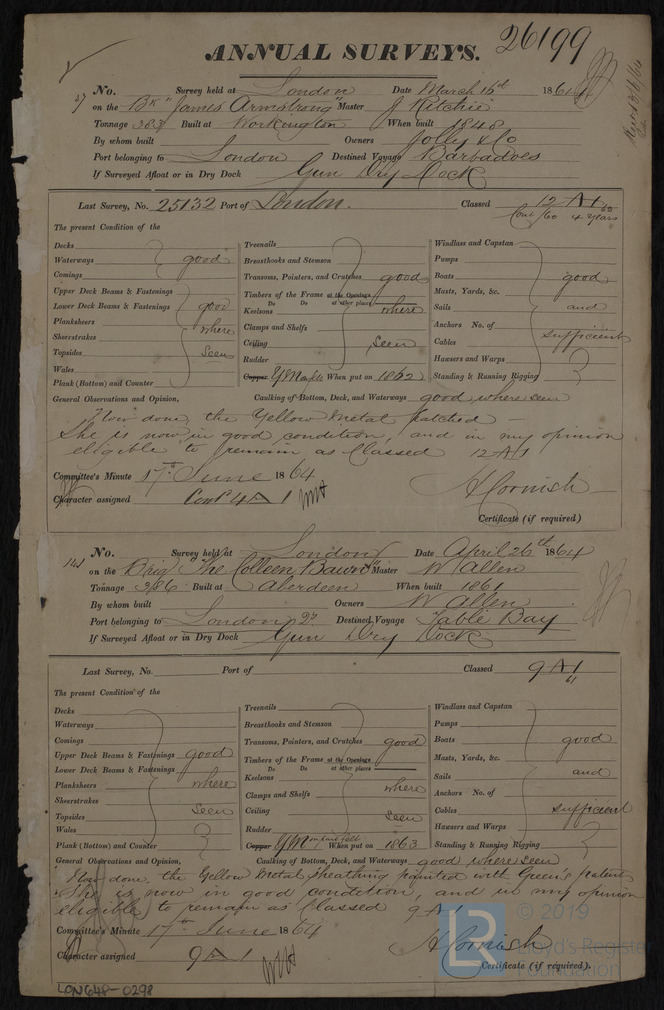 ANNUAL SURVEYS. 26199
27 No. Survey held at London Date March 16th 1864
on the Bk "James Armstrong" Master J Ritchie
Tonnage 383 Built at Workington When built 1848
By whom built Owners Jolly & Co
Port belonging to London Destined Voyage Barbadoes
If Surveyed Afloat or in Dry Dock Gun Dry Dock
Last Survey, No. 25132 Port of London. Classed 12 A 1
Cont/60 4 years
The present Condition of the
Decks
Waterways good
Comings
Upper Deck Beams & Fastenings
Lower Deck Beams & Fastenings good
Planksheers where
Sheerstrakes
Topsides seen
Wales
Plank (Bottom) and Counter
Treenails
Breasthooks and Stemson
Transoms, Pointers, and Crutches good
Timbers of the Frame at the Openings
Do Do at other places
Keelsons where
Clamps and Shelfs
Ceiling seen
Rudder
Copper Y Metal When put on 1862
Windlass and Capstan
Pumps
Boats good
Masts, Yards, &c.
Sails and
Anchors No. of
Cables sufficient
Hawsers and Warps
Standing & Running Rigging
General Observations and Opinion, Caulking of Bottom, Deck, and Waterways good where seen
Now done, the Yellow Metal patched
She is now in good condition, and in my opinion
eligible to remain as Classed 12 A 1
Committee's Minute 17th June 1864
Character assigned Cont 4 A 1 A Cornish
Certificate (if required)
141 No. Survey held at London Date April 26th 1864
on the Brig "The Colleen Bawn" Master W Allen
Tonnage 386 Built at Aberdeen When built 1861
By whom built Owners W Allen
Port belonging to London Destined Voyage Table Bay
If Surveyed Afloat or in Dry Dock Gun Dry Dock
Last Survey, No. Port of Classed 9 A 1
61
The present Condition of the
Decks
Waterways
Comings
Upper Deck Beams & Fastenings good
Lower Deck Beams & Fastenings
Planksheers where
Sheerstrakes
Topsides seen
Wales
Plank (Bottom) and Counter
Treenails
Breasthooks and Stemson
Transoms, Pointers, and Crutches good
Timbers of the Frame at the Openings
Do Do at other places
Keelsons
Clamps and Shelfs where
Ceiling seen
Rudder
Copper Y M When put on 1863
Windlass and Capstan
Pumps
Boats good
Masts, Yards, &c.
Sails and
Anchors No. of
Cables sufficient
Hawsers and Warps
Standing & Running Rigging
General Observations and Opinion, Caulking of Bottom, Deck, and Waterways good where seen
Now done, the Yellow Metal sheathing painted with Green's patent
She is now in good condition, and in my opinion
eligible to remain as Classed 9 A 1
Committee's Minute 17th June 1864
Character assigned 9 A 1 A Cornish
Certificate (if required).
LON648-0298
LR © 2019
Lloyd's Register
Foundation